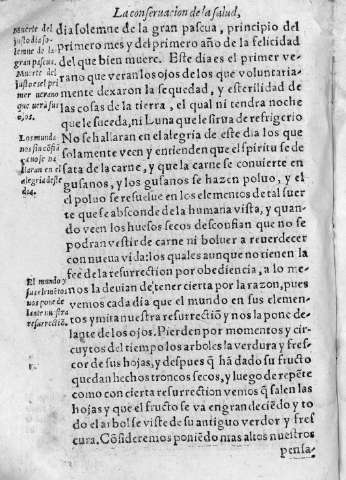 La conseruacion de la salud,
Muerte del
justo dia so-
lemne de la
gran pascus.
Muerte del
justo es el pri-
mer uerano
que uerà sus
ojos.
dia solemne de la gran pascua, principio del
primero mes y del primero año de la felicidad
del que bien muere. Este dia es el primer ve-
rano que veran los ojos de los que voluntaria-
mente dexaron la sequedad, y esterilidad de
las cosas de la tierra, el qual ni tendra noche
que le suceda, ni Luna que le sirua de refrigerio
Los munda
nos sin cõfiã
ça no se ha
llaran en el
alegria deste
dia.
No se hallaran en el alegria de este dia los que
solamente veen y entienden que el spiritu se de
sata de la carne, y que la carne se conuierte en
gusanos, y los gusanos se hazen poluo, y el
el poluo se resuelue en los elementos de tal suer
te que se absconde de la humana vista, y quan-
do veen los huesos secos desconfian que no se
podran vestir de carne ni boluer a reuerdecer
con nueua vida: los quales aunque no tienen la
fee de la resurrection por obediencia, a lo me-
El mundo y
sus elemẽtos
nos pone de
lante nuestra
resurrectiõ.
nos la deuian de tener cierta por la razon, pues
vemos cada dia que el mundo en sus elemen-
tos ymita nuestra resurrectiõ y nos la pone de-
lante de los ojos. Pierden por momentos y cir-
cuytos del tiempo los arboles la verdura y fres-
cor de sus hojas, y despues q̃ hã dado su fructo
quedan hechos troncos secos, y luego de repẽte
como con cierta resurrection vemos q̃ salen las
hojas y que el fructo se va engrandeciẽdo y to
do el arbol se viste de su antiguo verdor y fres
cura. Cõsideremos poniẽdo mas altos nuestros
pensa-